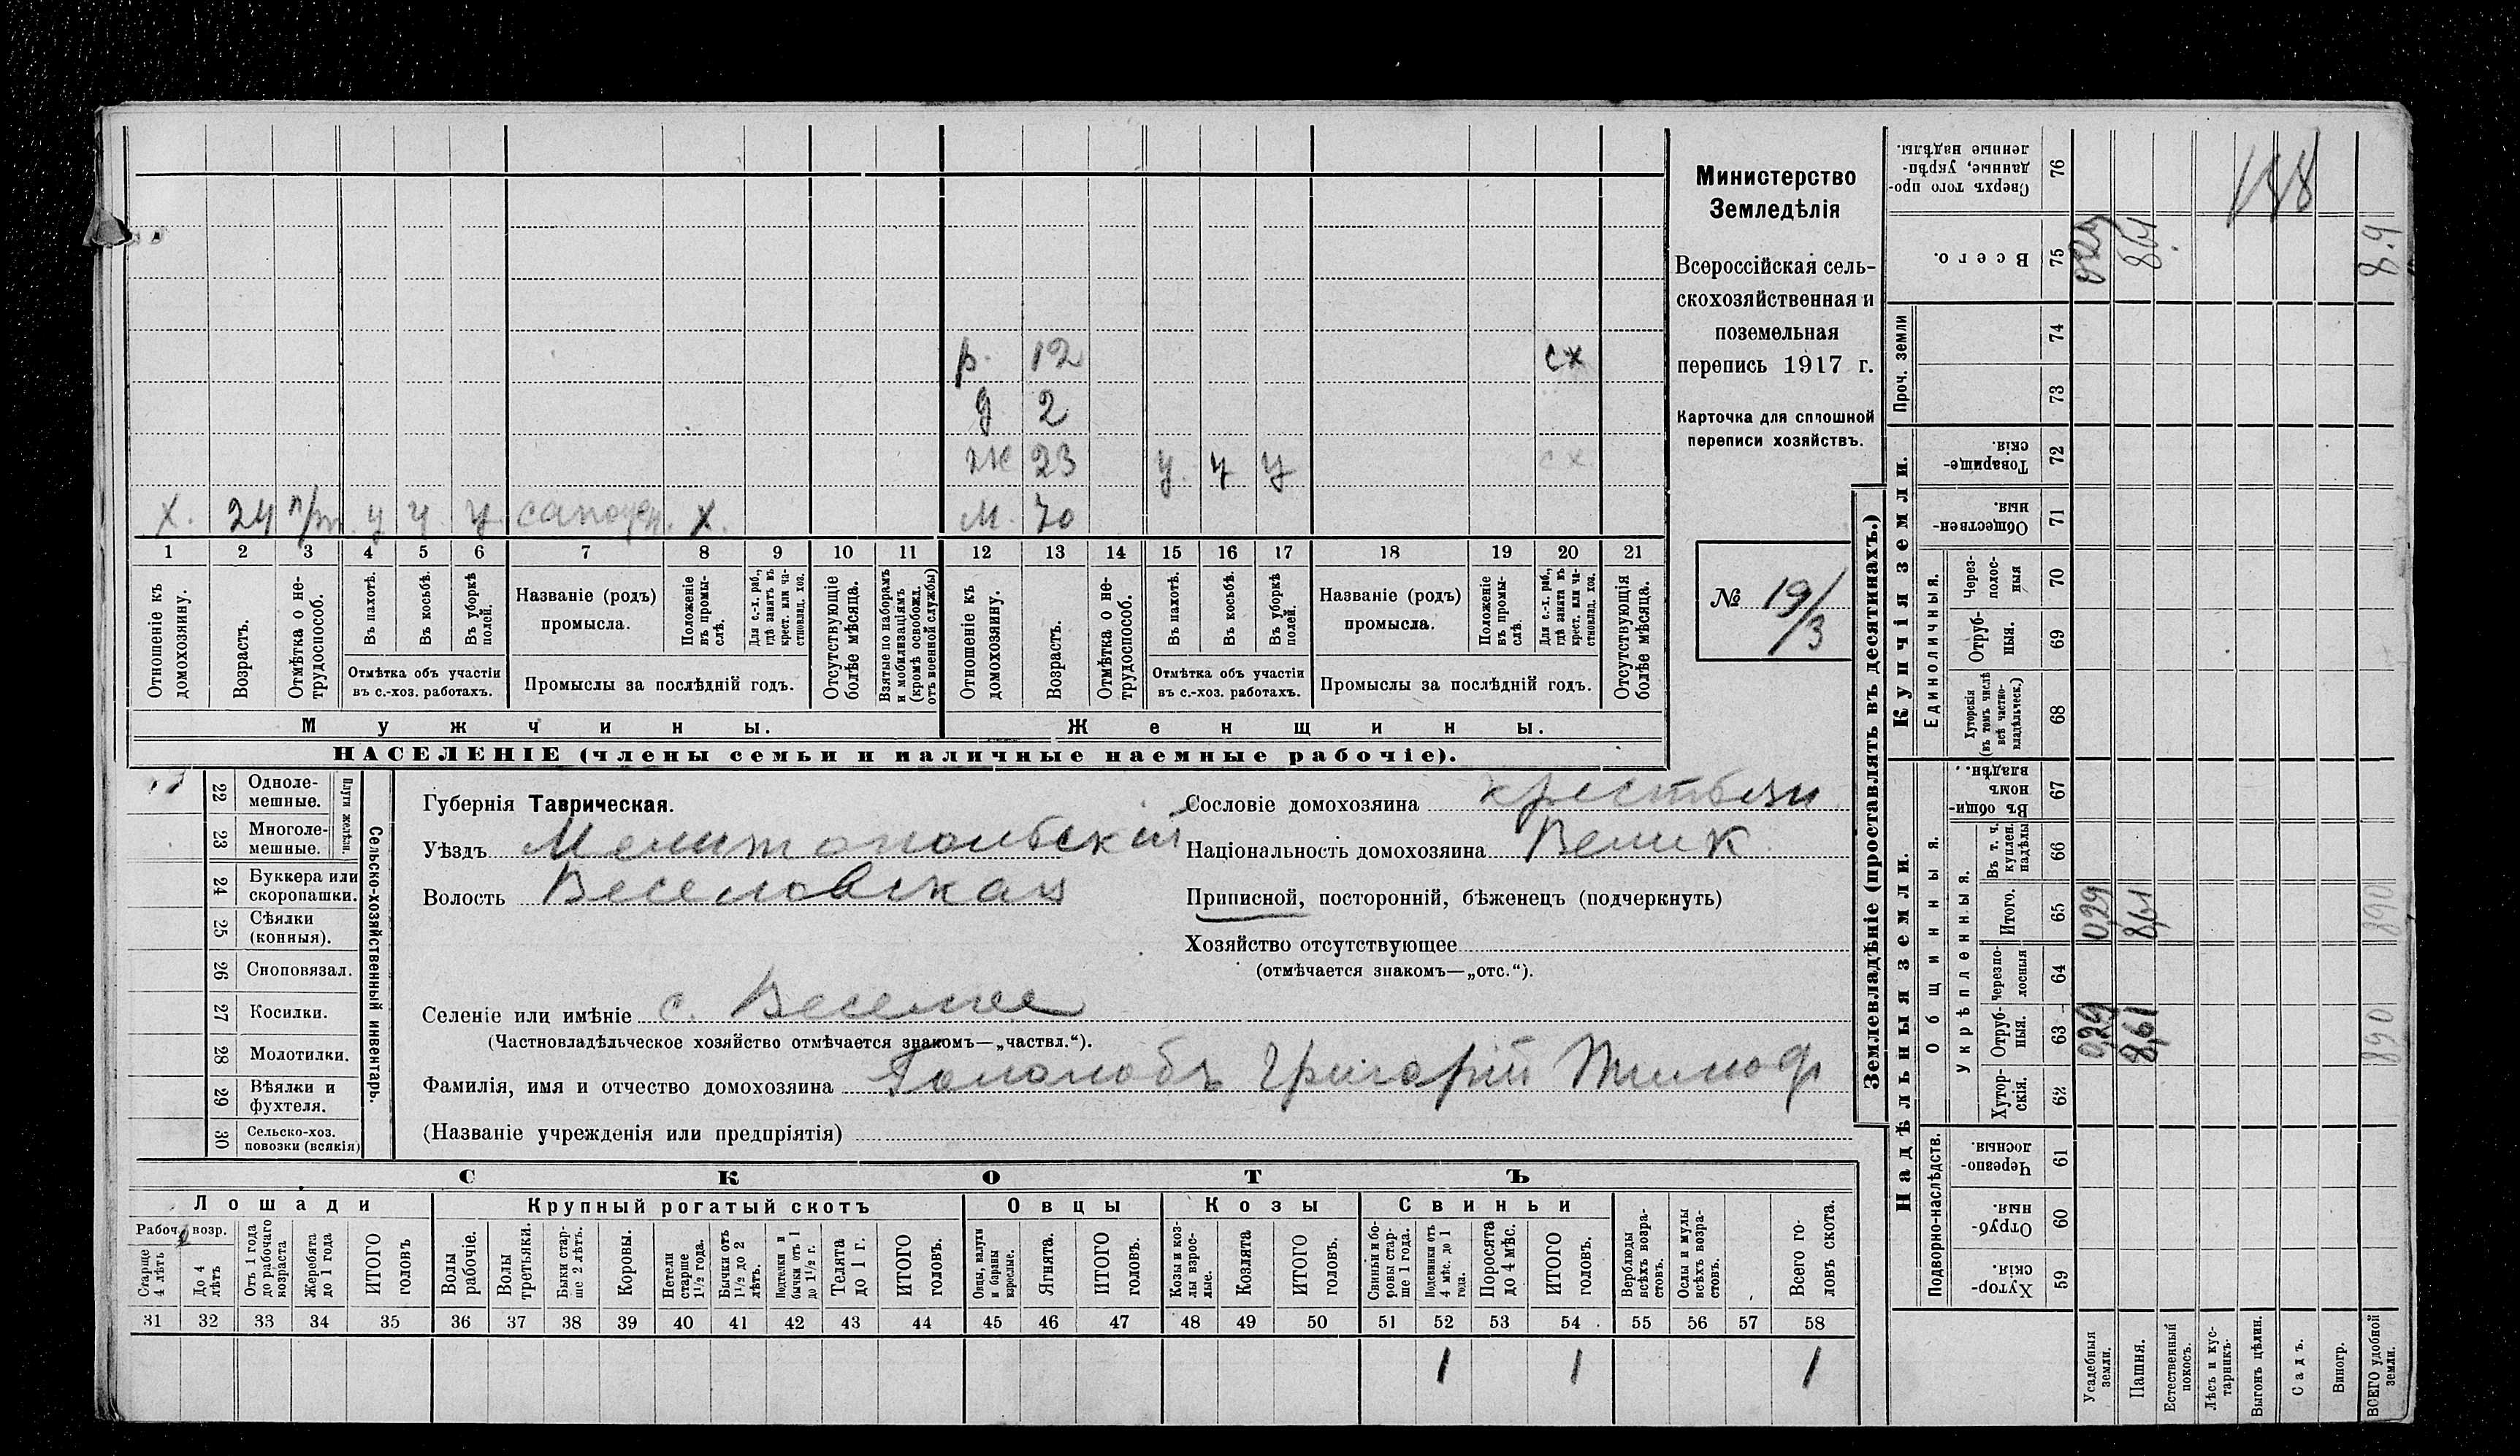 р. 12 сх
д 2
ж 23 у. у у сх
х. 24 п/т. у у. у. х. м. 70
1 2 3 4 5 6 7 8 9 10 11 12 13 14 15 16 17 18 19 20 21
Отношеніе къ домохозяину.
Возрастъ.
Отмѣтка о нетрудоспособ.
Въ пахотѣ.
Въ косьбѣ.
Въ уборкѣ полей.
Отмѣтка объ участіи
въ с.-хоз. работахъ.
Названіе (родъ)
промысла.
Положеніе въ промыслѣ.
Для с.-х. раб., гдѣ занятъ въ крест. или частновлад. хоз.
Промыслы за послѣдній годъ.
Отсутствующіе болѣе мѣсяца.
Взятые по наборамъ и мобилизаціямъ (кромѣ освобожд. отъ военной службы)
Отношеніе къ домохозяину.
Возрастъ.
Отмѣтка о нетрудоспособ.
Въ пахотѣ.
Въ косьбѣ.
Въ уборкѣ полей.
Отмѣтка объ участіи
въ с.-хоз. работахъ.
Названіе (родъ)
промысла.
Положеніе въ промыслѣ.
Для с.-х. раб., гдѣ занята въ крест. или частновлад. хоз.
Промыслы за послѣдній годъ.
Отсутствующія болѣе мѣсяца.
Мужчины.
Женщины.
НАСЕЛЕНІЕ (члены семьи и наличные наемные рабочіе).
Министерство
Земледѣлія
Всероссійская сель-
скохозяйственная и
поземельная
перепись 1917 г.
Карточка для сплошной
переписи хозяйствъ.
№ 19/3
22 Одноле-
мешные.
23 Многоле-
мешные.
Плуги желѣзн.
24 Буккера или
скоропашки.
25 Сѣялки
(конныя).
26 Сноповязал.
27 Косилки.
28 Молотилки.
29 Вѣялки и
фухтеля.
30 Сельско-хоз.
повозки (всякія)
Сельско-хозяйственный инвентарь.
Губернія Таврическая.
Уѣздъ Мелитопольскій
Волость Веселовская
Селеніе или имѣніе с. Веселое
(Частновладѣльческое хозяйство отмѣчается знакомъ—„частвл.“).
Фамилія, имя и отчество домохозяина Гололобъ Григорій Тимоф
(Названіе учрежденія или предпріятія)
Сословіе домохозяина крестьян
Національность домохозяина Велик.
Приписной, посторонній, бѣженецъ (подчеркнуть)
Хозяйство отсутствующее
(отмѣчается знакомъ—„отс.“).
СКОТЪ
Лошади
Рабоч. возр.
Старше 4 лѣтъ
До 4 лѣтъ
Отъ 1 года до рабочаго возраста
Жеребята до 1 года
ИТОГО головъ
Крупный рогатый скотъ
Волы рабочіе.
Волы третьяки.
Быки старше 2 лѣтъ.
Коровы.
Нетели старше 1½ года.
Бычки отъ 1½ до 2 лѣтъ.
Подтелки и бычки отъ 1 до 1½ г.
Телята до 1 г.
ИТОГО головъ.
Овцы
Овцы, валухи и бараны взрослые.
Ягнята.
ИТОГО головъ.
Козы
Козы и козлы взрослые.
Козлята
ИТОГО головъ.
Свиньи
Свиньи и боровы старше 1 года.
Подсвинки отъ 4 мѣс. до 1 года.
Поросята до 4 мѣс.
ИТОГО головъ.
Верблюды всѣхъ возрастовъ.
Ослы и мулы всѣхъ возрастовъ.
Всего головъ скота.
31 32 33 34 35 36 37 38 39 40 41 42 43 44 45 46 47 48 49 50 51 52 53 54 55 56 57 58
1 1 1
Землевладѣніе (проставлять въ десятинахъ.)
Сверхъ того проданные, укрѣпленные надѣлы. 76 158
Всего. 75 8.9
Проч. земли
74
73
Купчія земли.
Товарищескія. 72
Общественныя. 71
Единоличныя.
Черезполосныя 70
Отрубныя. 69
Хуторскія (въ томъ числѣ всѣ частновладѣльческ.) 68
Надѣльныя земли.
Общинныя.
Въ общинномъ владѣн. 67
Укрѣпленныя.
Въ т. ч. куплен. надѣлы 66
Итого. 65 0,29 8,61 890
Черезполосныя 64
Отрубныя. 63 0,29 8,61 890
Хуторскія. 62
Подворно-наслѣдств.
Черезполосныя. 61
Отрубныя. 60
Хуторскія. 59
Усадебныя земли.
Пашня.
Естественный покосъ.
Лѣсъ и кустарникъ.
Выгонъ цѣлин.
Садъ.
Виногр.
ВСЕГО удобной земли.